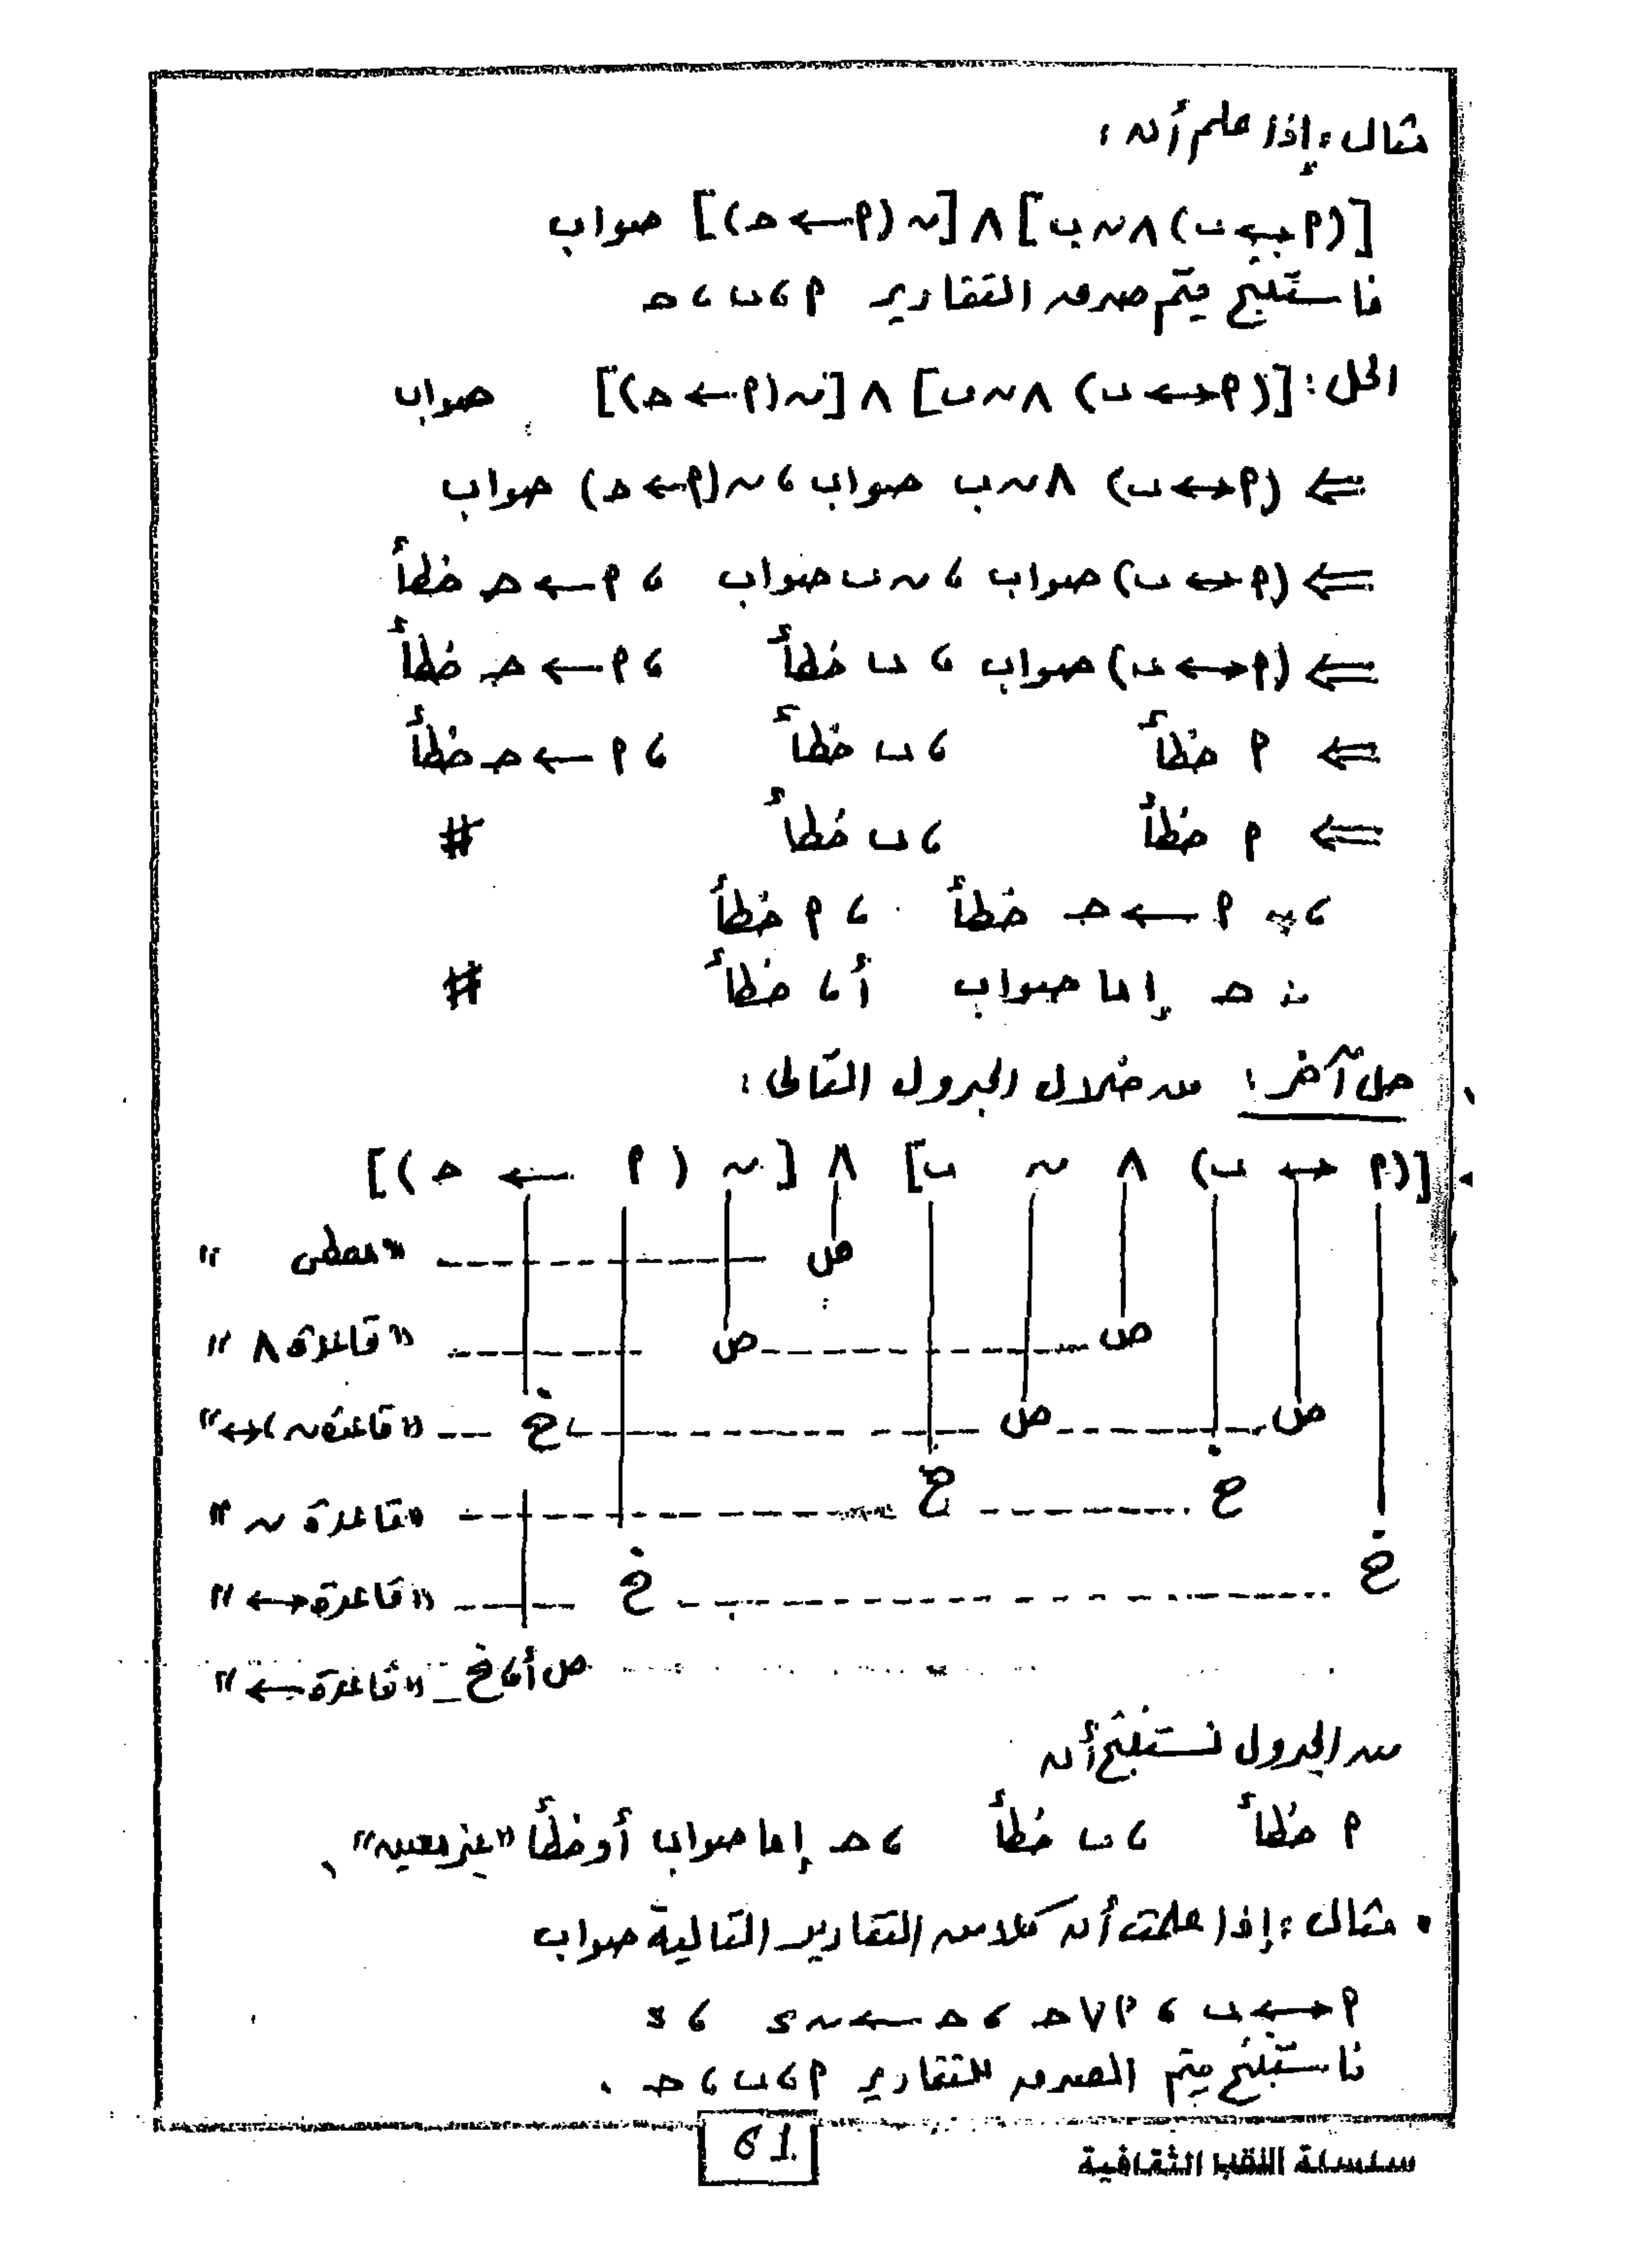 مثال : إذا علم أن :
[(م ↔ ب) ∧ ~ب] ∧ [~(م ← حـ)] صواب
فاستنتج قيم صدق التقارير م ، ب ، حـ
الحل : [(م ↔ ب) ∧ ~ب] ∧ [~(م ← حـ)] صواب
⇐ (م ↔ ب) ∧ ~ب صواب ، ~(م ← حـ) صواب
⇐ (م ↔ ب) صواب ، ~ب صواب ، م ← حـ خطأ
⇐ (م ↔ ب) صواب ، ب خطأ ، م ← حـ خطأ
⇐ م خطأ ، ب خطأ ، م ← حـ خطأ
⇐ م خطأ ، ب خطأ #
، ∵ م ← حـ خطأ ، م خطأ
∴ حـ إما صواب أو خطأ #
حل آخر : من خلال الجدول التالى :
[(م ↔ ب) ∧ ~ ب] ∧ [~ (م ← حـ)]
ص ---- «معطى »
ص ---- ص ---- «قاعدة ∧ »
ص ---- ص ---- خ ---- «قاعدة ~ ، ↔»
خ ---- خ ---- «قاعدة ~ »
خ ---- خ ---- «قاعدة ↔ »
ص أو خ - «قاعدة ← »
من الجدول نستنتج أن
م خطأ ، ب خطأ ، حـ إما صواب أو خطأ «غير معين»
• مثال : إذا علمت أن كلا من التقارير التالية صواب
م ↔ ب ، م ∨ حـ ، حـ ← ~ء ، ء
فاستنتج قيم الصدق للتقارير م ، ب ، حـ .
61
سلسلة النقب الثقافية